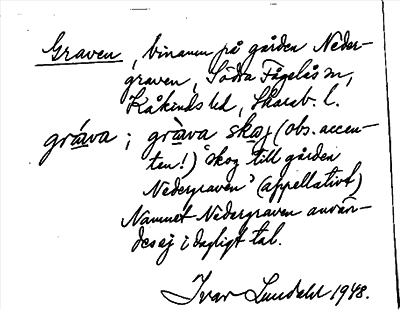 Graven, binamn på gården Neder-
graven, Södra Fågelås sn,
Kåkinds hd, Skarab. l.
gráva; gràva skoj (obs. accen-
ten!) 'skog till gården
Nedergraven' (appellativt)
Namnet Nedergraven använ-
des ej i dagligt tal.
Ivar Lundahl 1948.